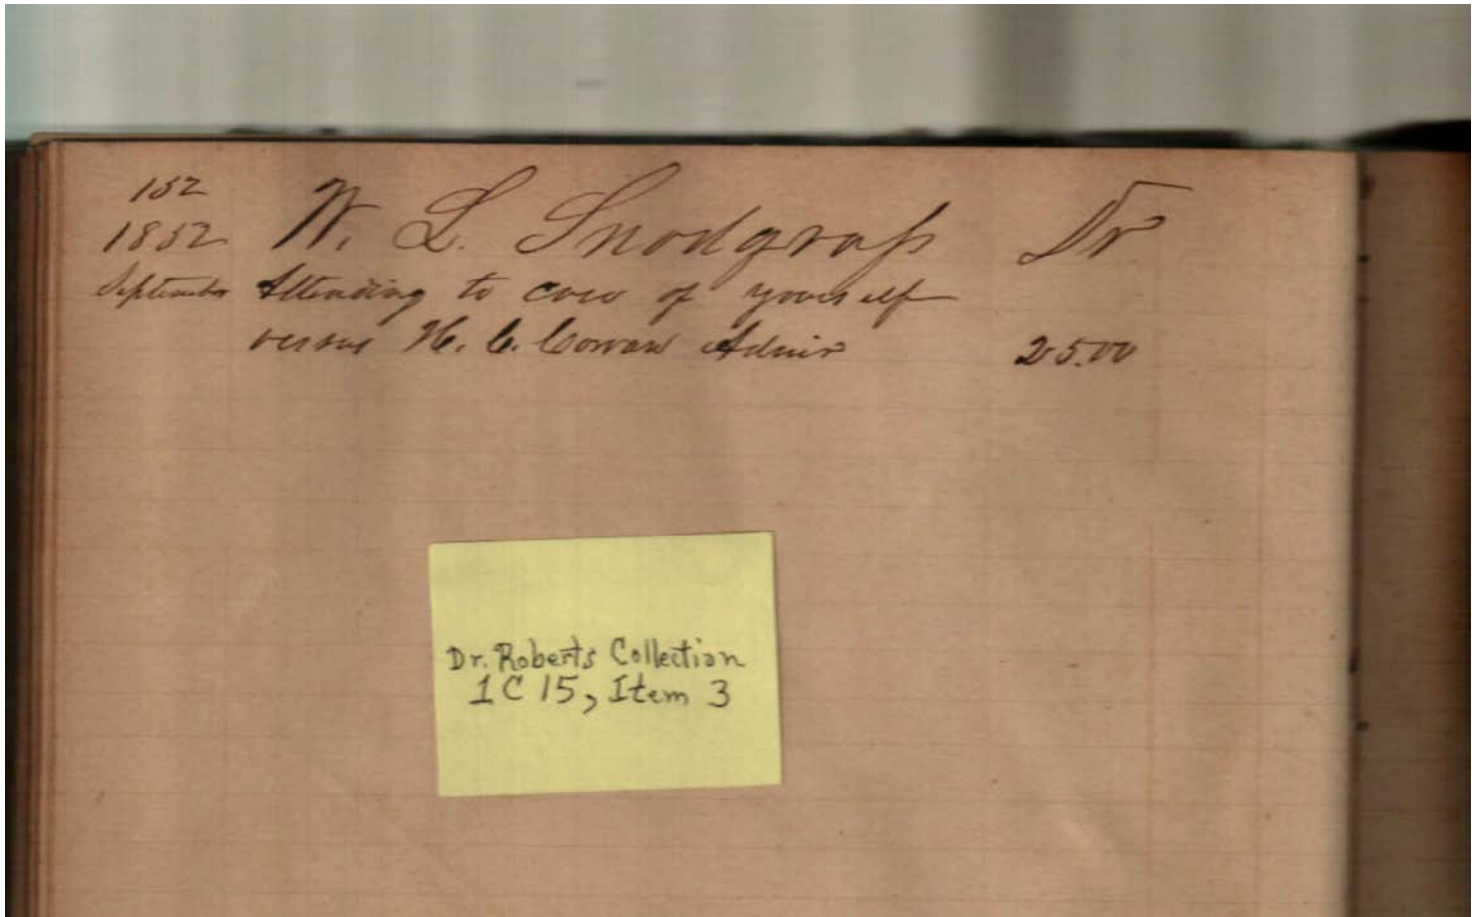 152
1852 W. L. Snodgrass Dr
September Attending to case of yourself
versus H. C. Cowan Admir 25.00
Dr. Roberts Collection
1 C 15, Item 3